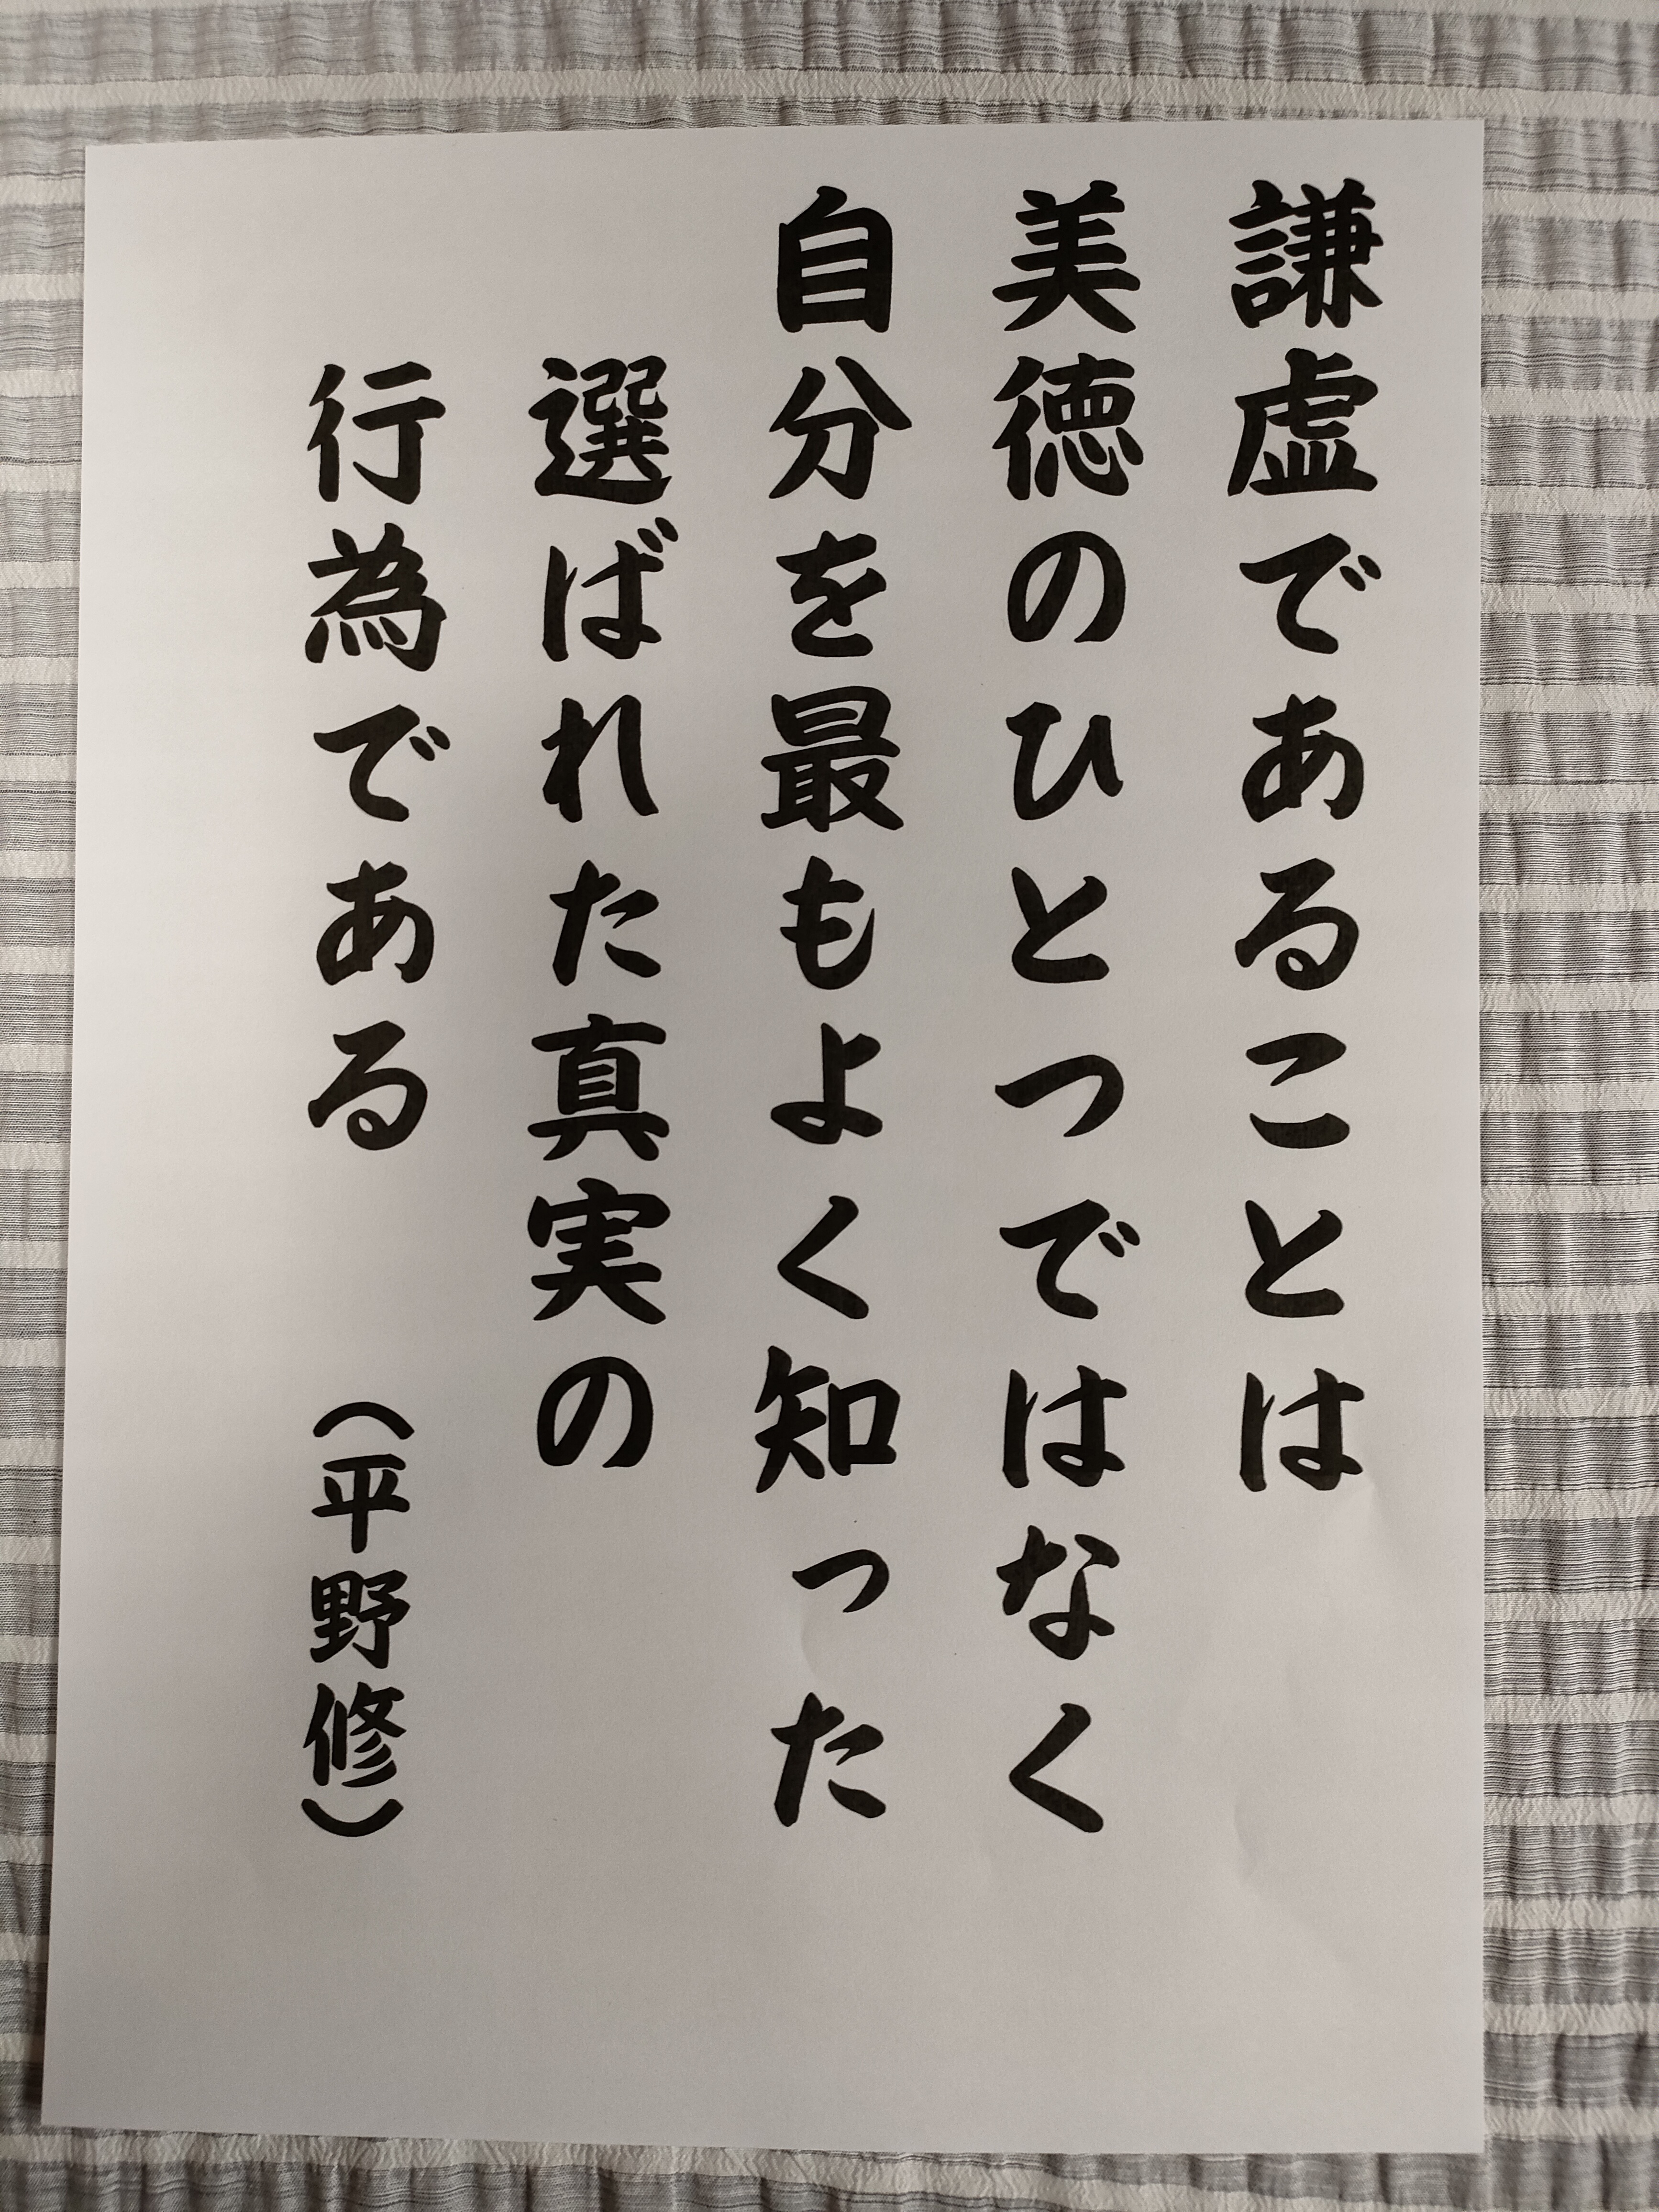 謙虚であることは
美徳のひとつではなく
自分を最もよく知った
選ばれた真実の
行為である （平野修）